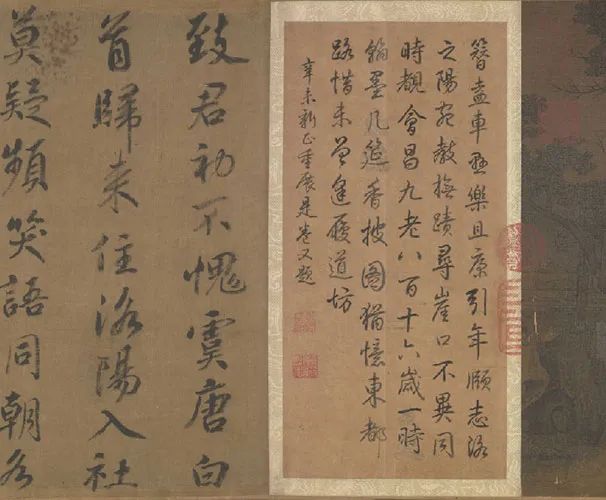 簪盍車懸樂且康引年頤志洛
之陽宛教撫蹟尋崖口不異同
時覩會昌九老八百十六歲一時
翰墨几筵香披圖猶憶東都
路惜未曾逢履道坊
辛未新正重展是卷又題
致君初不愧虞唐白
首歸来住洛陽入社
莫疑頻笑語同朝各